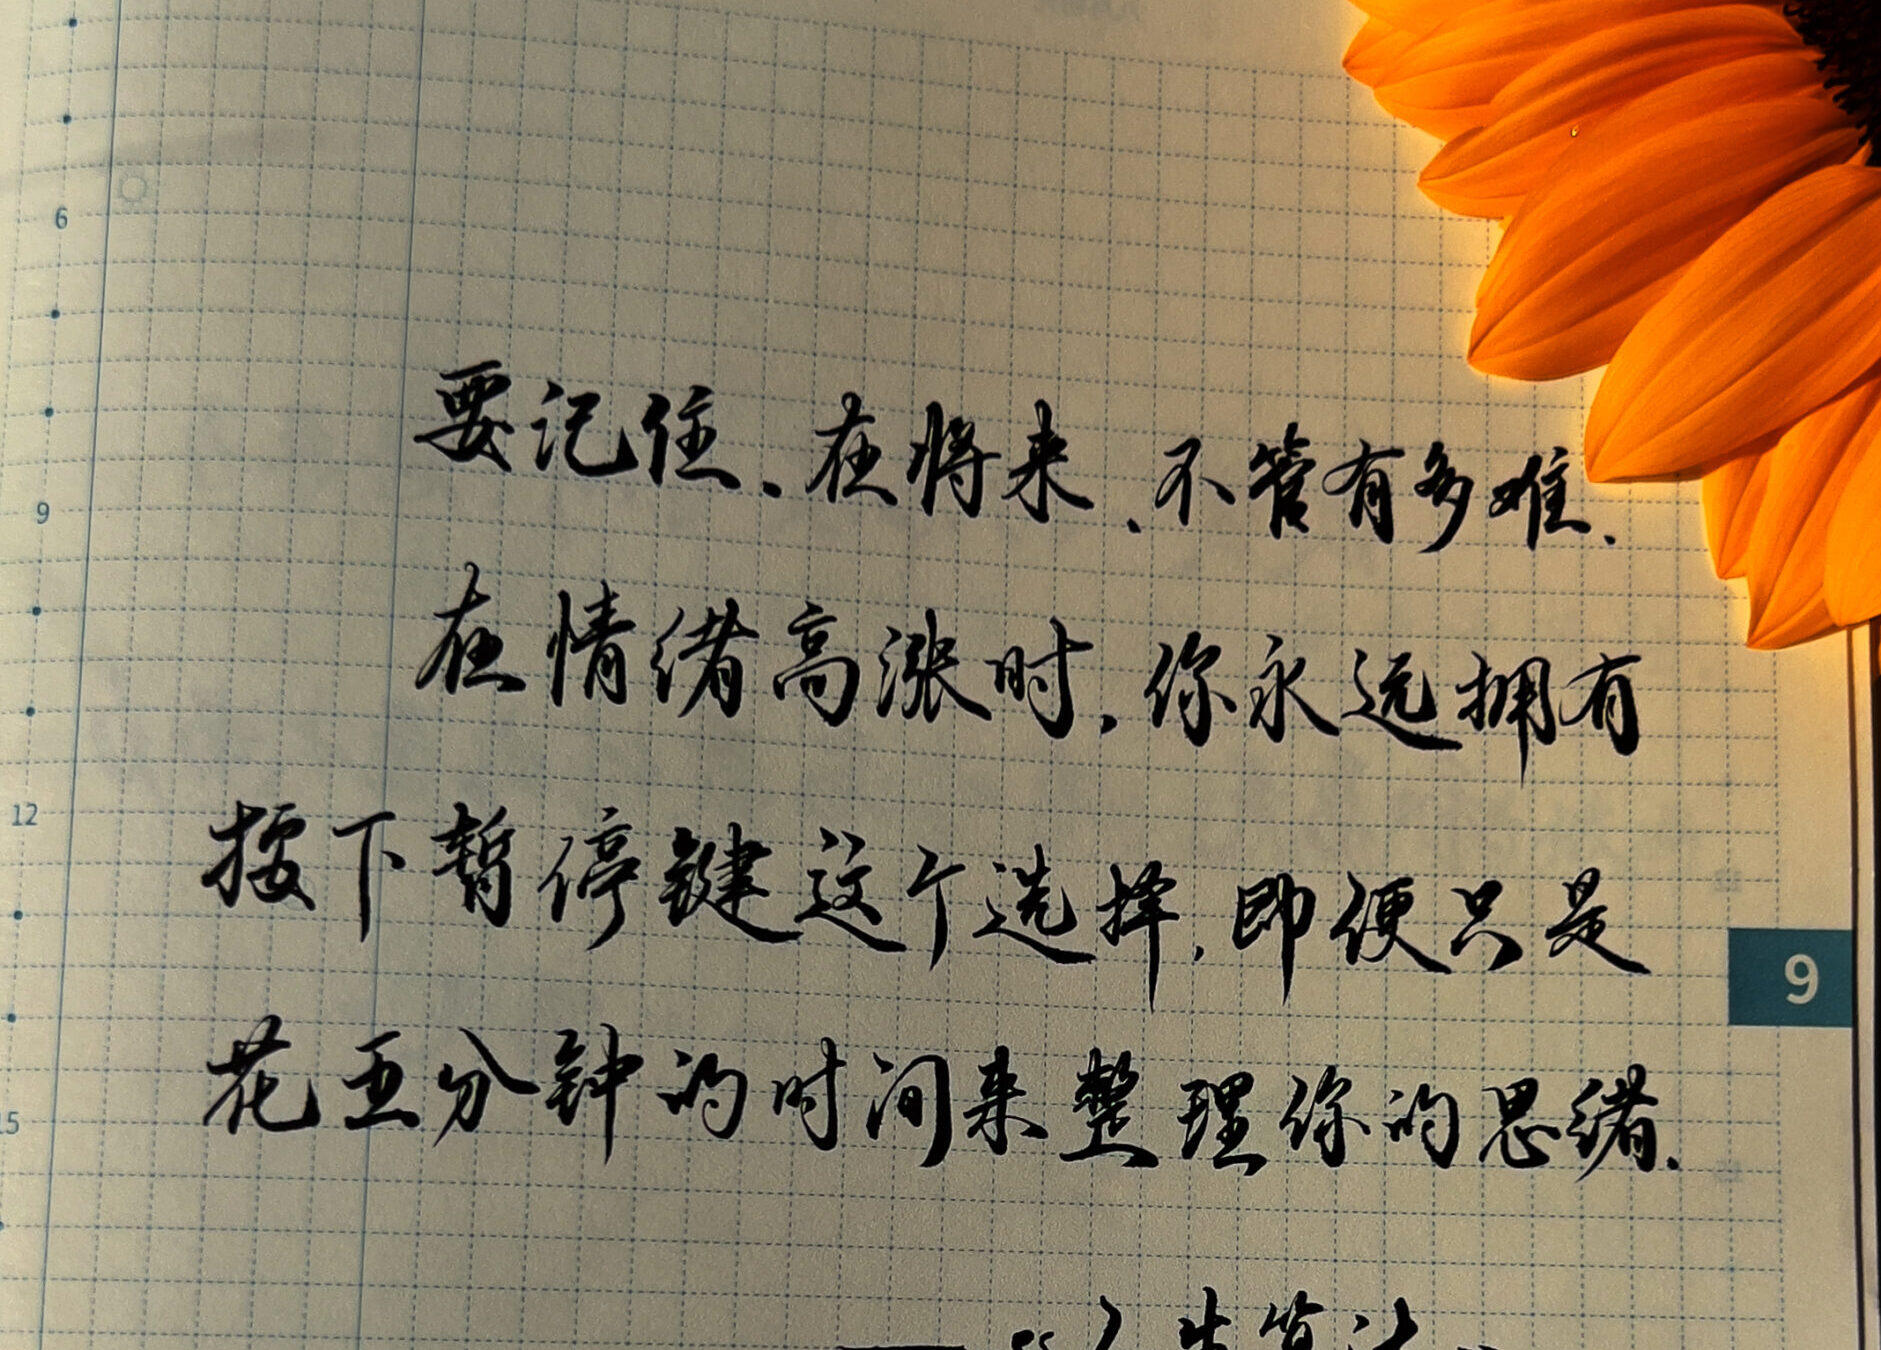 6
要记住、在将来、不管有多难、
9
在情绪高涨时,你永远拥有
12
按下暂停键这个选择,即便只是
9
花五分钟的时间来整理你的思绪.